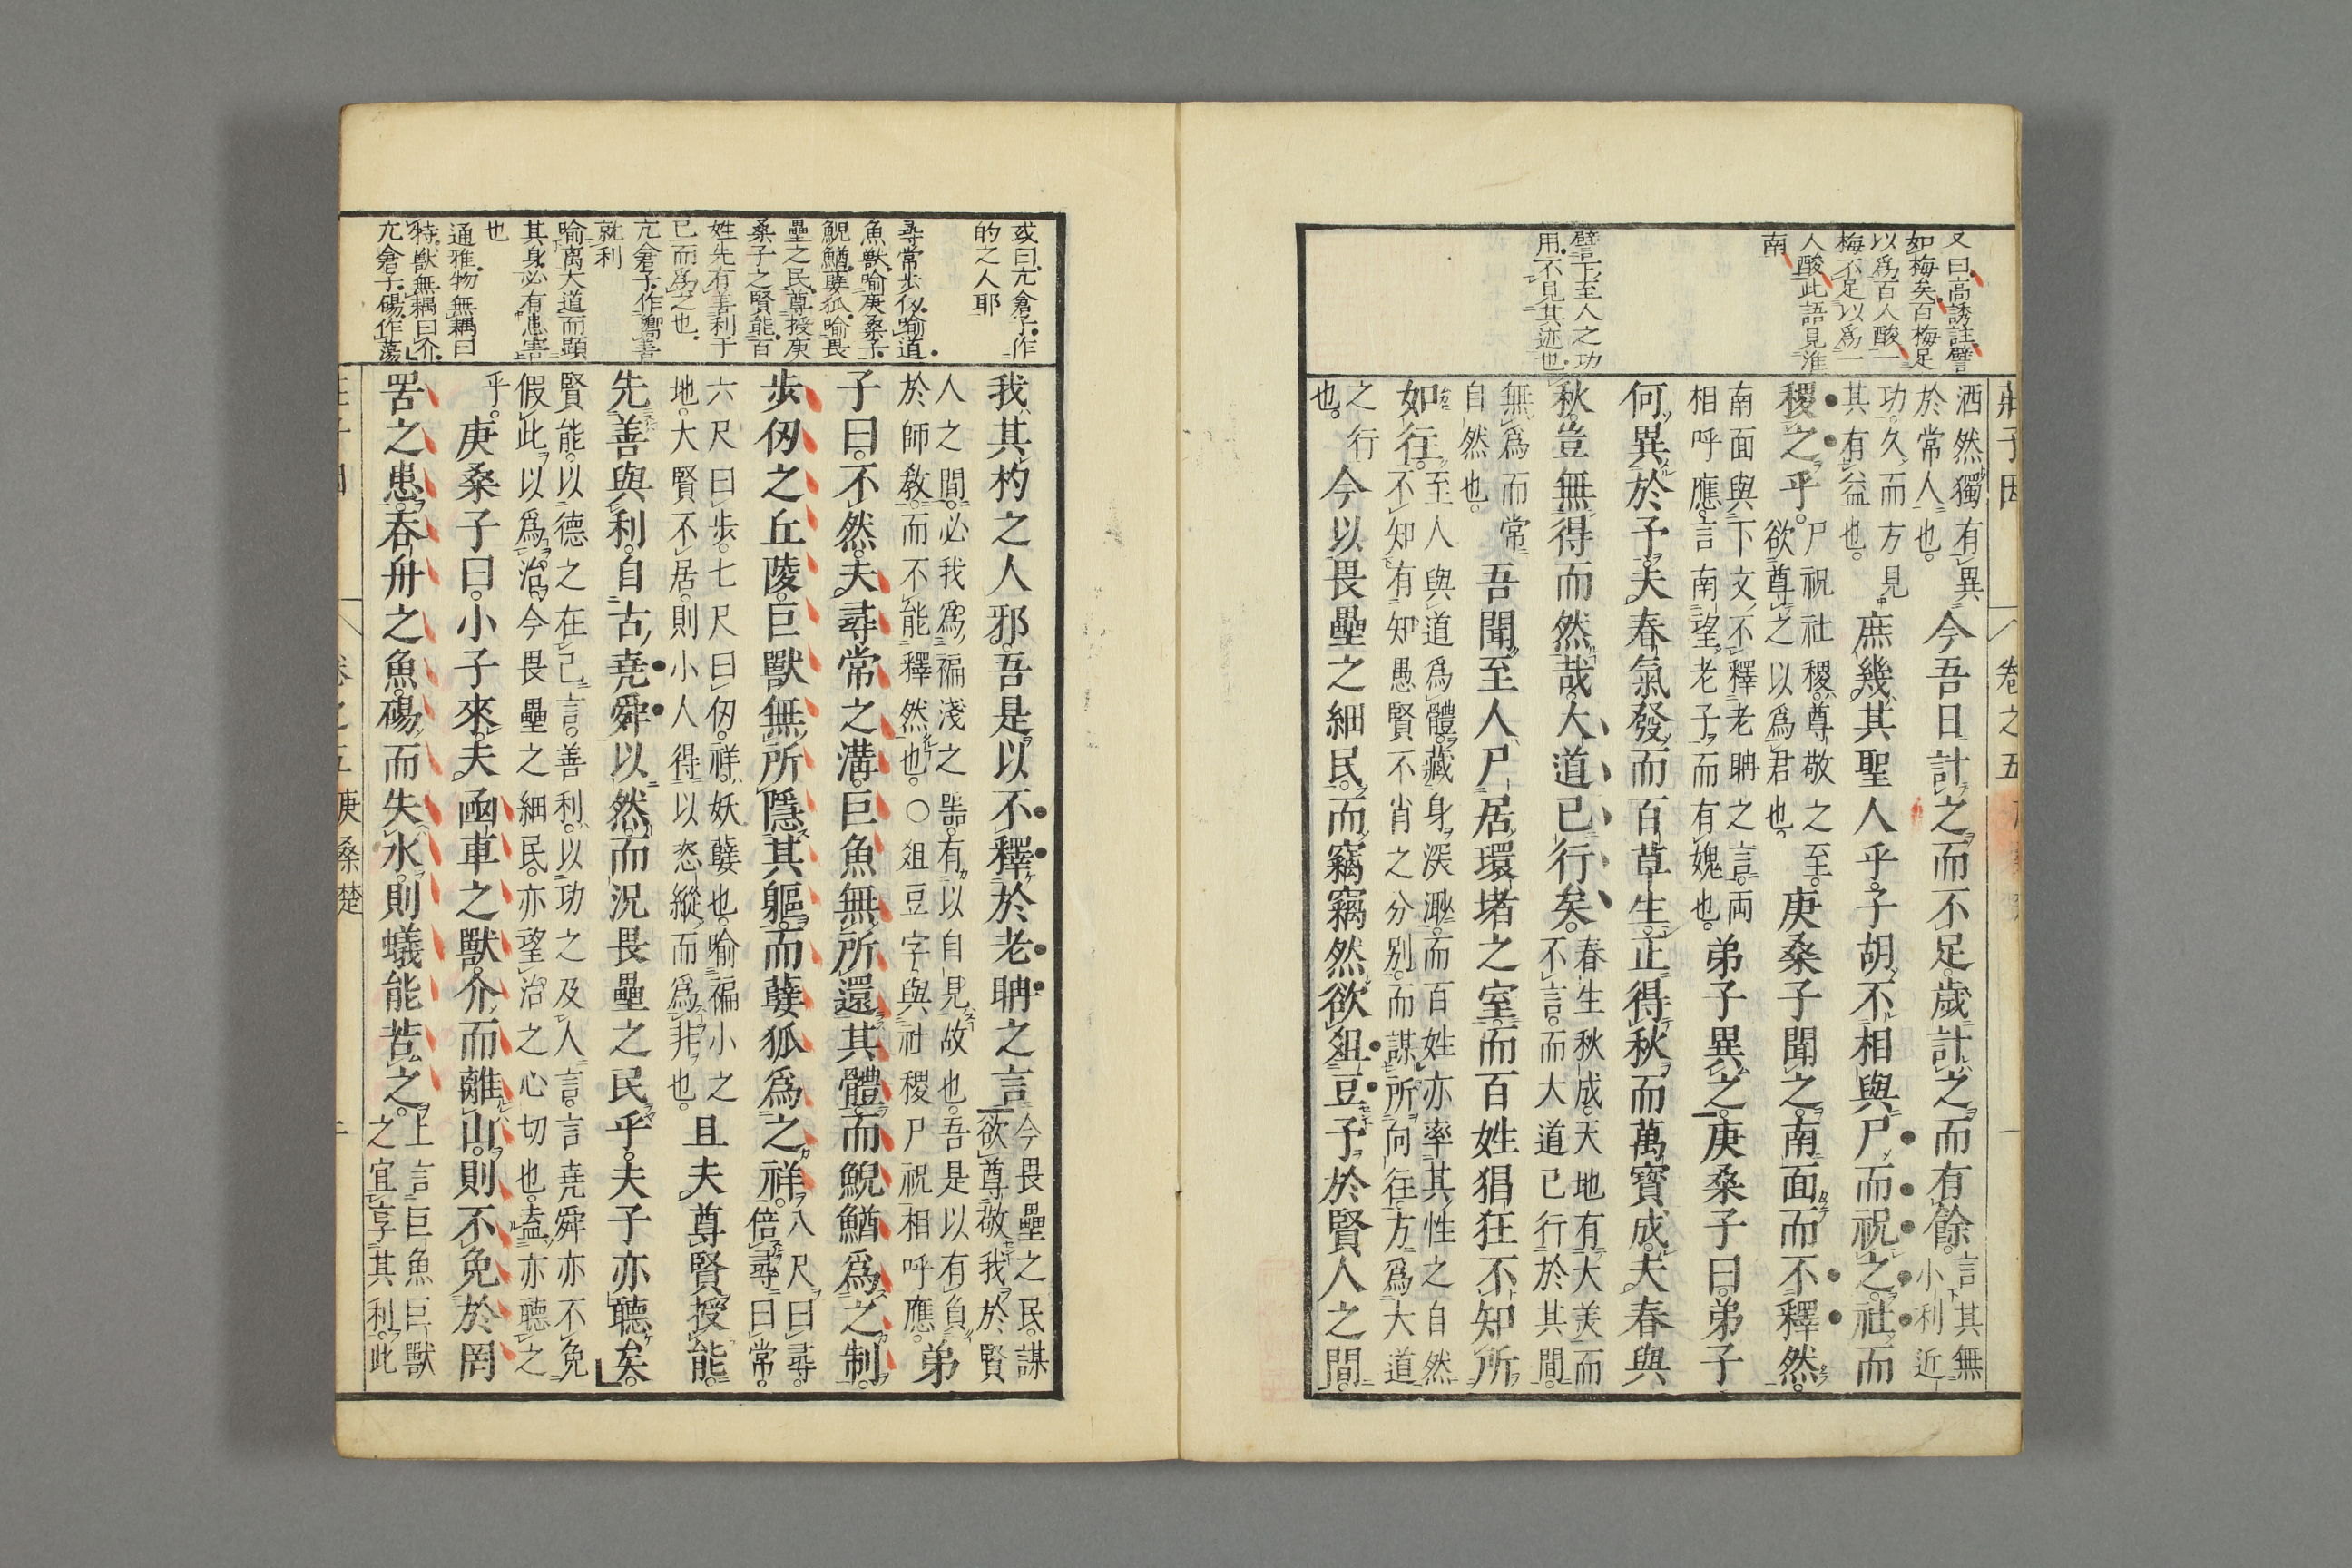 又曰高誘註譬
如梅矣百梅足
以爲百人酸一
梅不足以爲一
人酸此語見淮
南
譬下至人之功
用不見其迹也
莊子因 卷之五
洒然獨有異
於常人也。
今吾日計之而不足歲計之而有餘。
言其無
小利近
功。久而方見
其有益也。
庶幾其聖人乎子胡不相與尸而祝之社而
稷之乎。
尸祝社稷尊敬之至。
欲尊之以爲君也。
庚桑子聞之南面而不釋然。
南面與下文不釋老聃之言。兩
相呼應。言南望老子而有媿也。
弟子異之。庚桑子曰。弟子
何異於予。夫春氣發而百草生。正得秋而萬寶成。夫春與
秋。豈無得而然哉。大道已行矣。
春生秋成。天地有大美而
不言。而大道已行於其間。
無爲而常
自然也。
吾聞至人尸居環堵之室。而百姓猖狂不知所
如往。
至人與道爲體。藏身深渺。而百姓亦率其性之自然
不知有知愚賢不肖之分別。而謀所向往。方爲大道
之行
也。
今以畏壘之細民。而竊竊然欲俎豆予於賢人之間。
或曰亢倉子作
的之人耶
尋常步仭喻道
魚獸喻庚桑子
鯢鰌孽狐喻畏
壘之民尊授庚
桑子之賢能百
姓先有善利于
已而爲之也
亢倉子作嚮善
就利
喻离大道而顕
其身必有患害
也
通雅物無耦曰
特獸無耦曰介
亢倉子碭作蕩
我其杓之人邪。吾是以不釋於老聃之言
今畏壘之民謀
欲尊敬我於賢
人之間。必我爲褊淺之噐。有以自見故也。吾是以有負
於師教。而不能釋然也。〇俎豆字與社稷尸祝相呼應。
弟
子曰。不然。夫尋常之溝。巨魚無所還其體。而鯢鰌爲之制。
步仭之丘陵。巨獸無所隱其軀。而孽狐爲之祥。
八尺曰尋。
倍尋曰常。
六尺曰步。七尺曰仭。祥妖孽也。喻褊小之
地。大賢不居。則小人得以恣縱。而爲非也。
且夫尊賢授能。
先善與利。自古堯舜以然。而況畏壘之民乎。夫子亦聽矣。
賢能。以德之在己言。善利。以功之及人言。言堯舜亦不免
假此以爲治。今畏壘之細民。亦望治之心切也。盍亦聽之
乎。
庚桑子曰。小子來。夫凾車之獸。介而離山。則不免於罔
罟之患。吞舟之魚。碭而失水。則蟻能苦之。
上言巨魚巨獸
之宜享其利。此
卷之五 庚桑楚